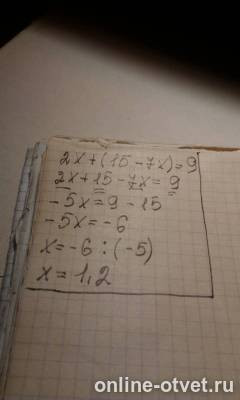 2x+(15-7x)=9
2x+15-7x=9
-5x=9-15
-5x=-6
x=-6:(-5)
x=1,2
online-otvet.ru